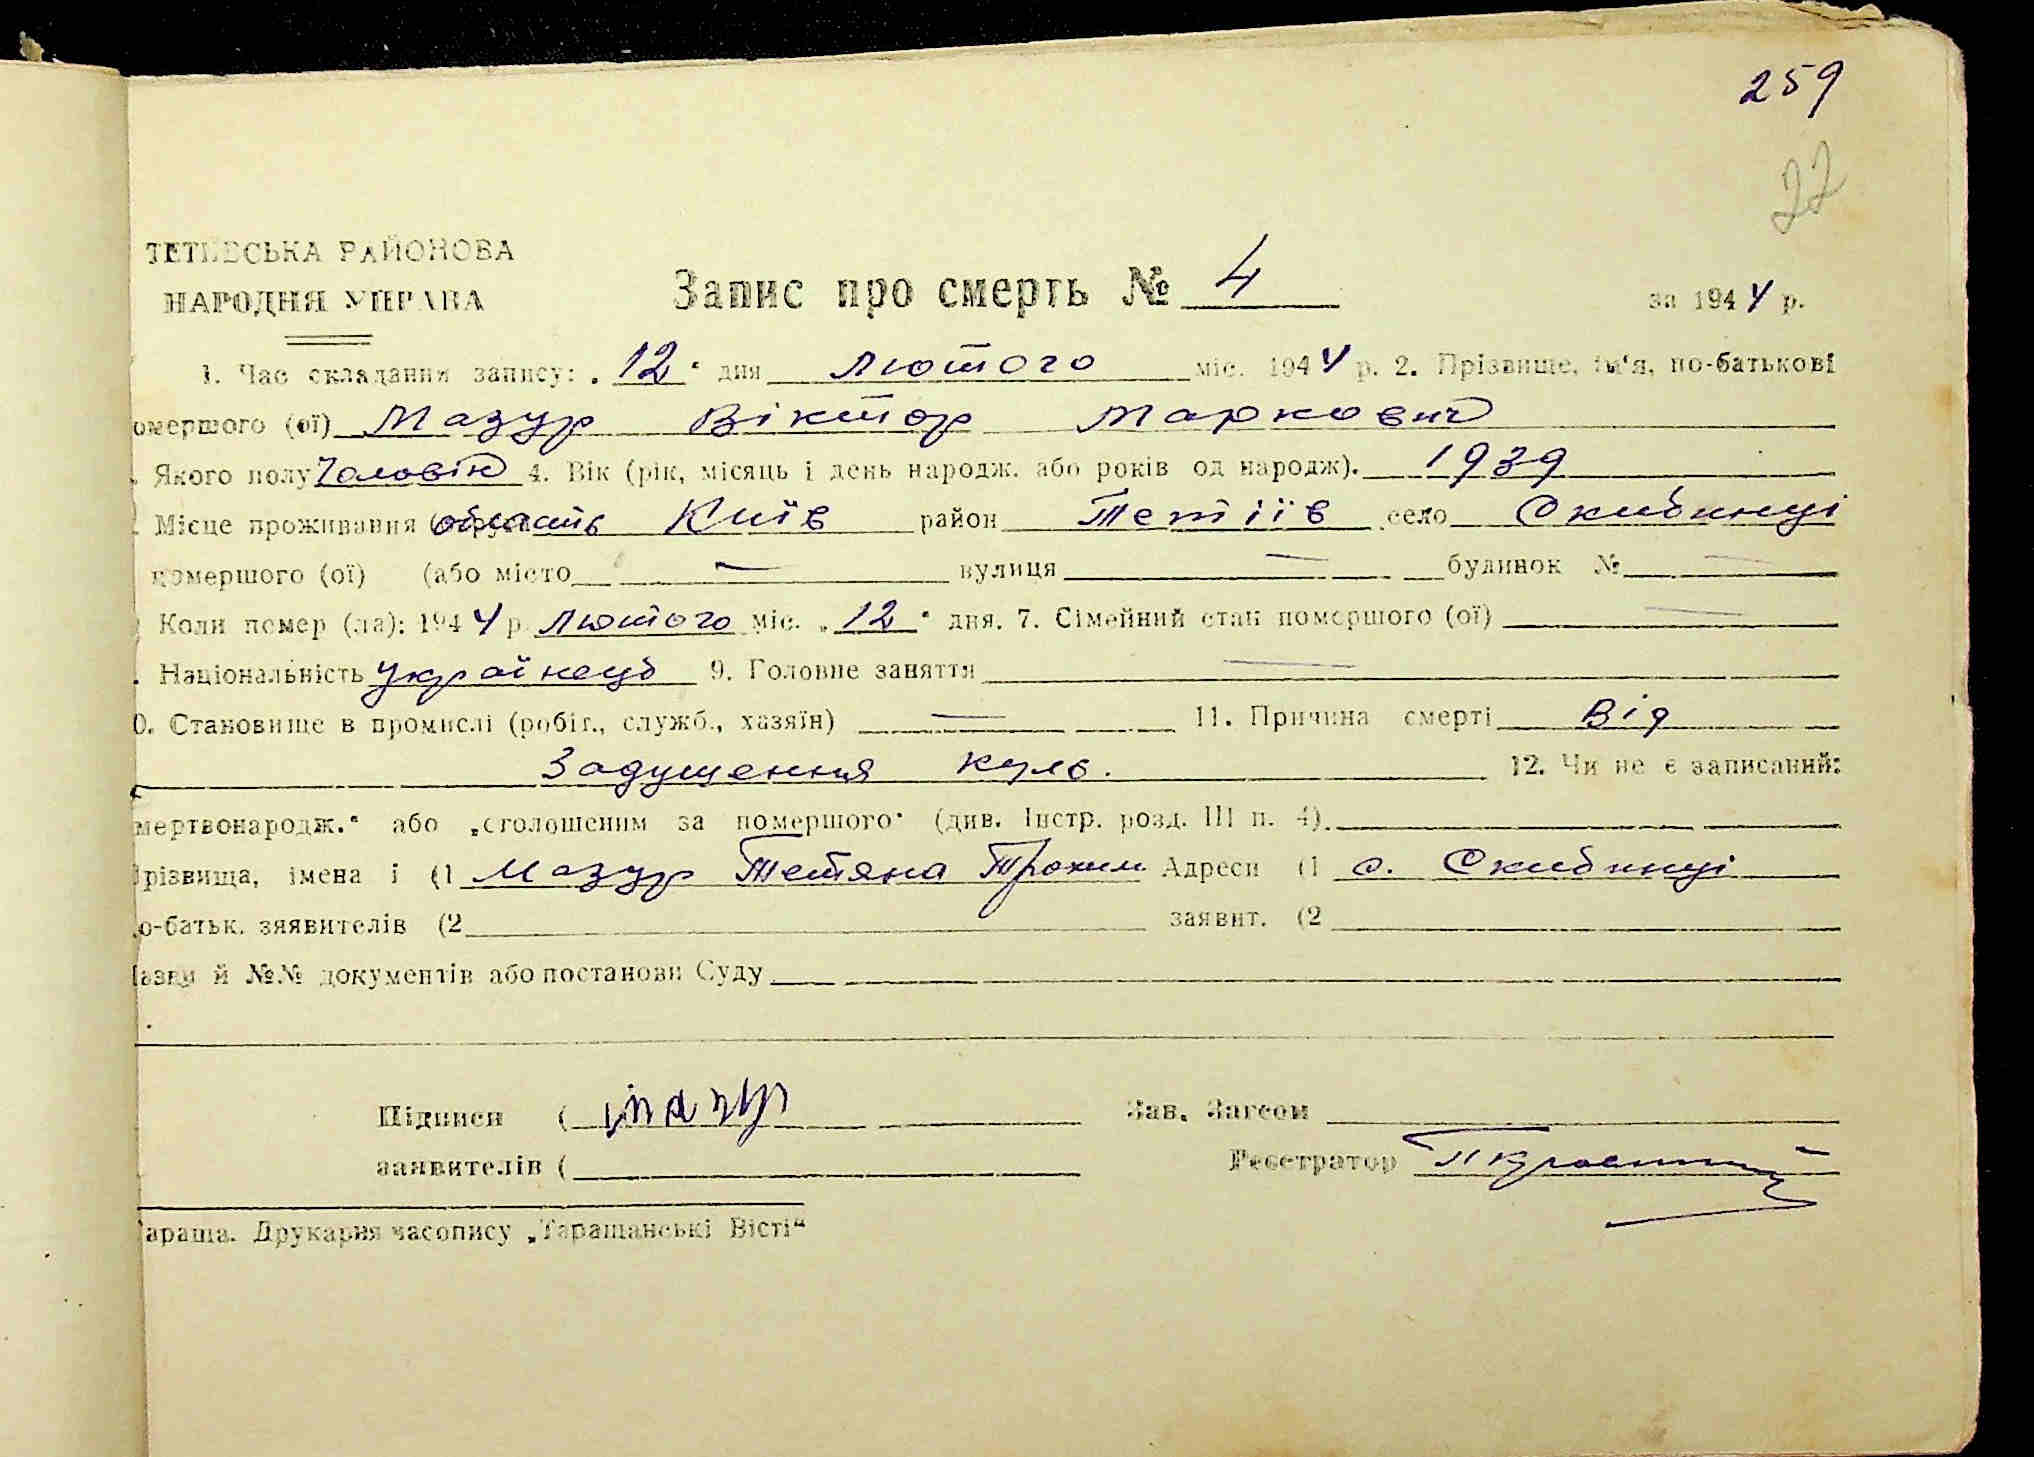 259
22
ТЕТІЇВСЬКА РАЙОНОВА
НАРОДНЯ УПРАВА
Запис про смерть № 4
за 1944 р.
1. Час складання запису: „12“ дня лютого міс. 1944 р. 2. Прізвище, ім'я, по-батькові
омершого (ої) Мазур Віктор Маркович
. Якого полу Чоловік 4. Вік (рік, місяць і день народж. або років од народж). 1939
. Місце проживання область Київ район Тетіїв село Скибинці
помершого (ої) (або місто — вулиця — будинок № —
Коли помер (ла): 1944 р. лютого міс. „12“ дня. 7. Сімейний стан помершого (ої) —
. Національність українець 9. Головне заняття —
0. Становище в промислі (робіт., служб., хазяїн) — 11. Причина смерті Від
Задушення куль. 12. Чи не є записаний:
мертвонародж.“ або „оголошеним за помершого“ (див. Інстр. розд. III п. 4).
різвища, імена і (1 Мазур Тетяна Трохим Адреси (1 с. Скибинці
о-батьк. зяявителів (2 заявит. (2
азви й №№ документів або постанови Суду
Підписи ( Мазур Зав. Загсом
заявителів ( Реєстратор
араща. Друкарня часопису „Таращанські Вісті“